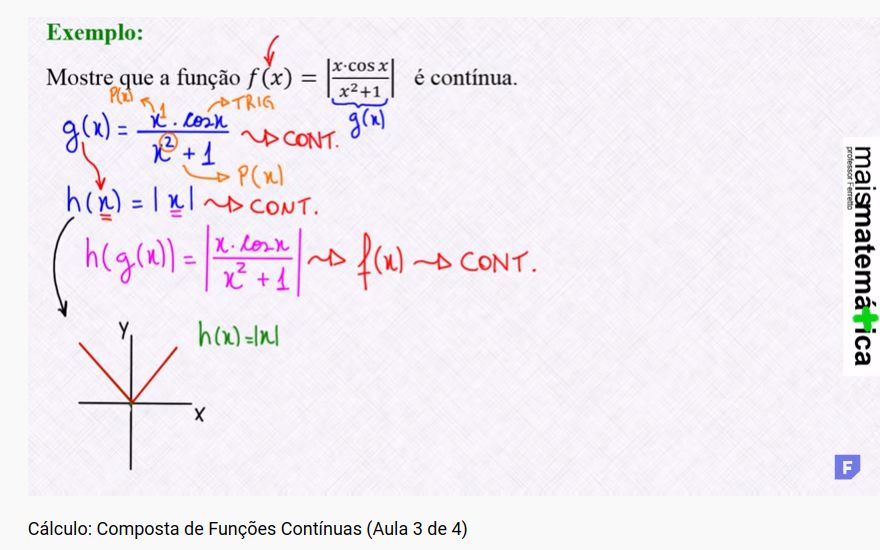 Exemplo:
Mostre que a função f(x) = |x·cos x / x²+1| é contínua.
P(x) TRIG
g(x) = x¹ . cosx / x² + 1 ~> CONT. g(x)
P(x)
h(x) = |x| ~> CONT.
h(g(x)) = |x . cosx / x² + 1| ~> f(x) ~> CONT.
Y h(x)=|x|
X
maismatemática
professor Ferretto
F
Cálculo: Composta de Funções Contínuas (Aula 3 de 4)